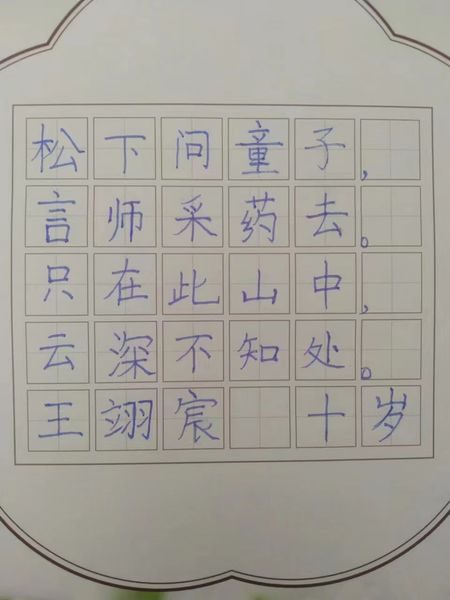 松下问童子，
言师采药去。
只在此山中，
云深不知处。
王翊宸 十岁